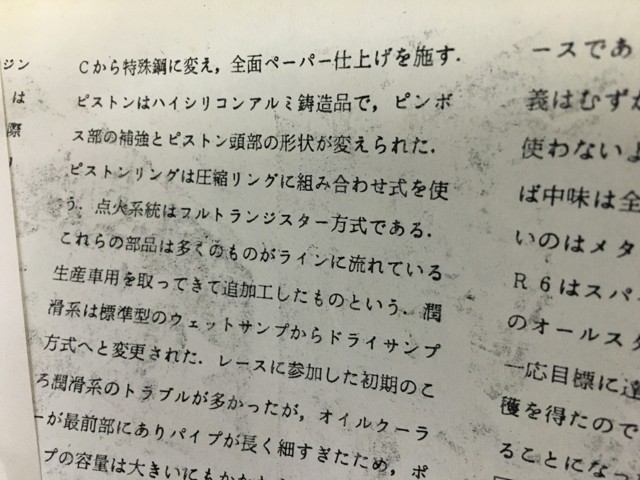 ジン
は
際
Cから特殊鋼に変え，全面ペーパー仕上げを施す．
ピストンはハイシリコンアルミ鋳造品で，ピンボ
ス部の補強とピストン頭部の形状が変えられた．
ピストンリングは圧縮リングに組み合わせ式を使
う．点火系統はフルトランジスター方式である．
これらの部品は多くのものがラインに流れている
生産車用を取ってきて追加工したものという．潤
滑系は標準型のウェットサンプからドライサンプ
方式へと変更された．レースに参加した初期のこ
ろ潤滑系のトラブルが多かったが，オイルクーラ
ーが最前部にありパイプが長く細すぎたため，ポ
プの容量は大きいにもかか
ースであ
義はむず
使わないよ
ば中味は全
いのはメタ
R6はスパ
のオールスタ
一応目標に達
穫を得たので
ることになっ